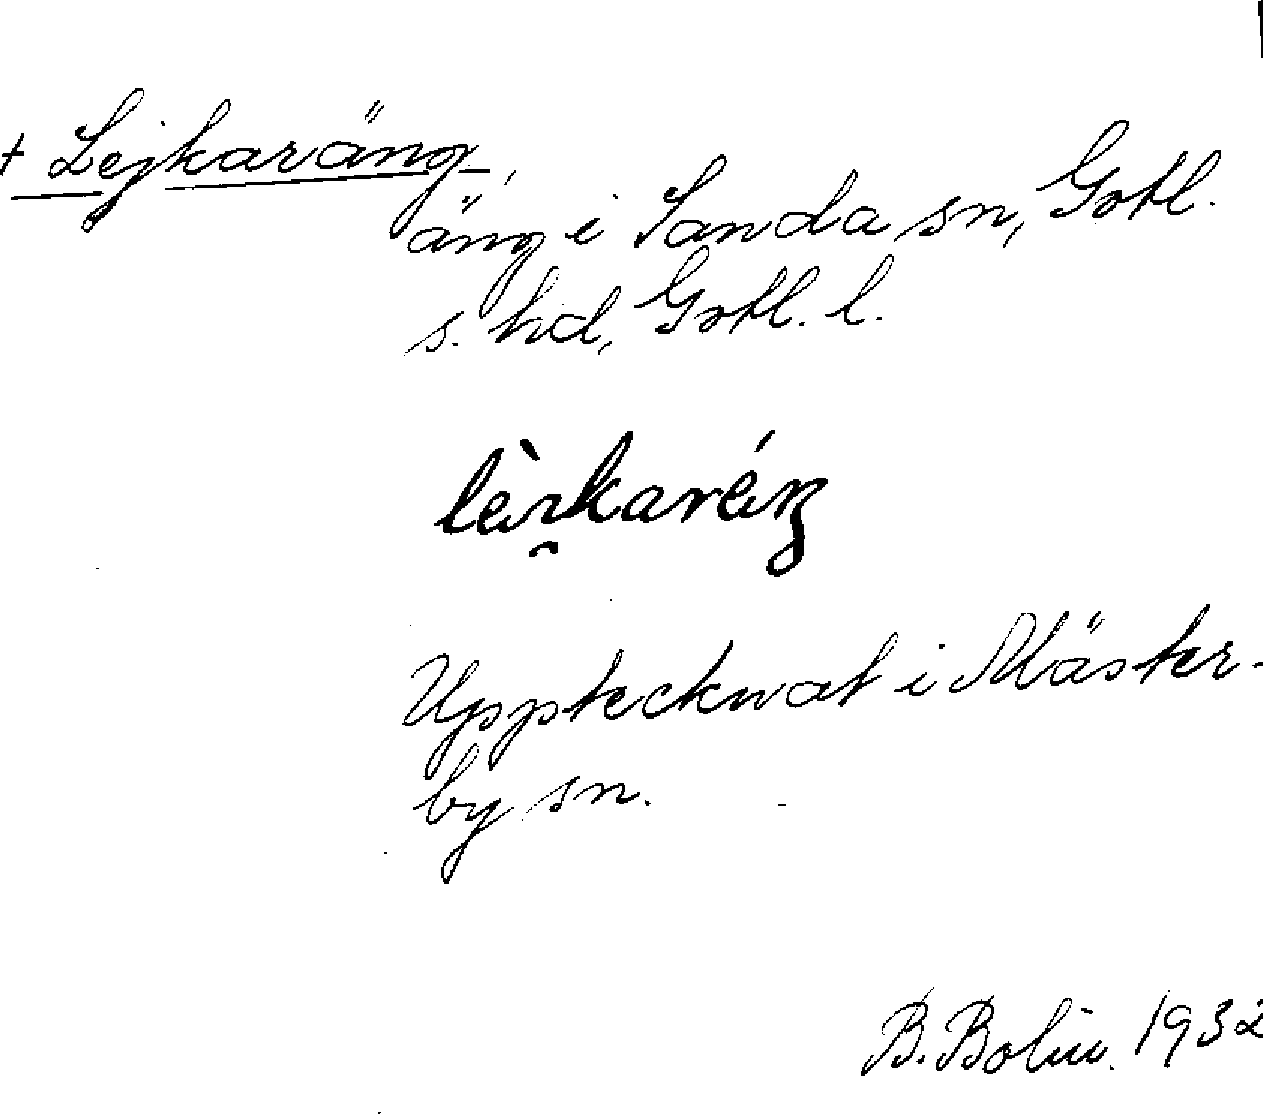 + Lejkaräng,
äng i Sanda sn, Gotl.
s. hd, Gotl. l.
Upptecknat i Mäster-
by sn.
B. Bolin. 1932